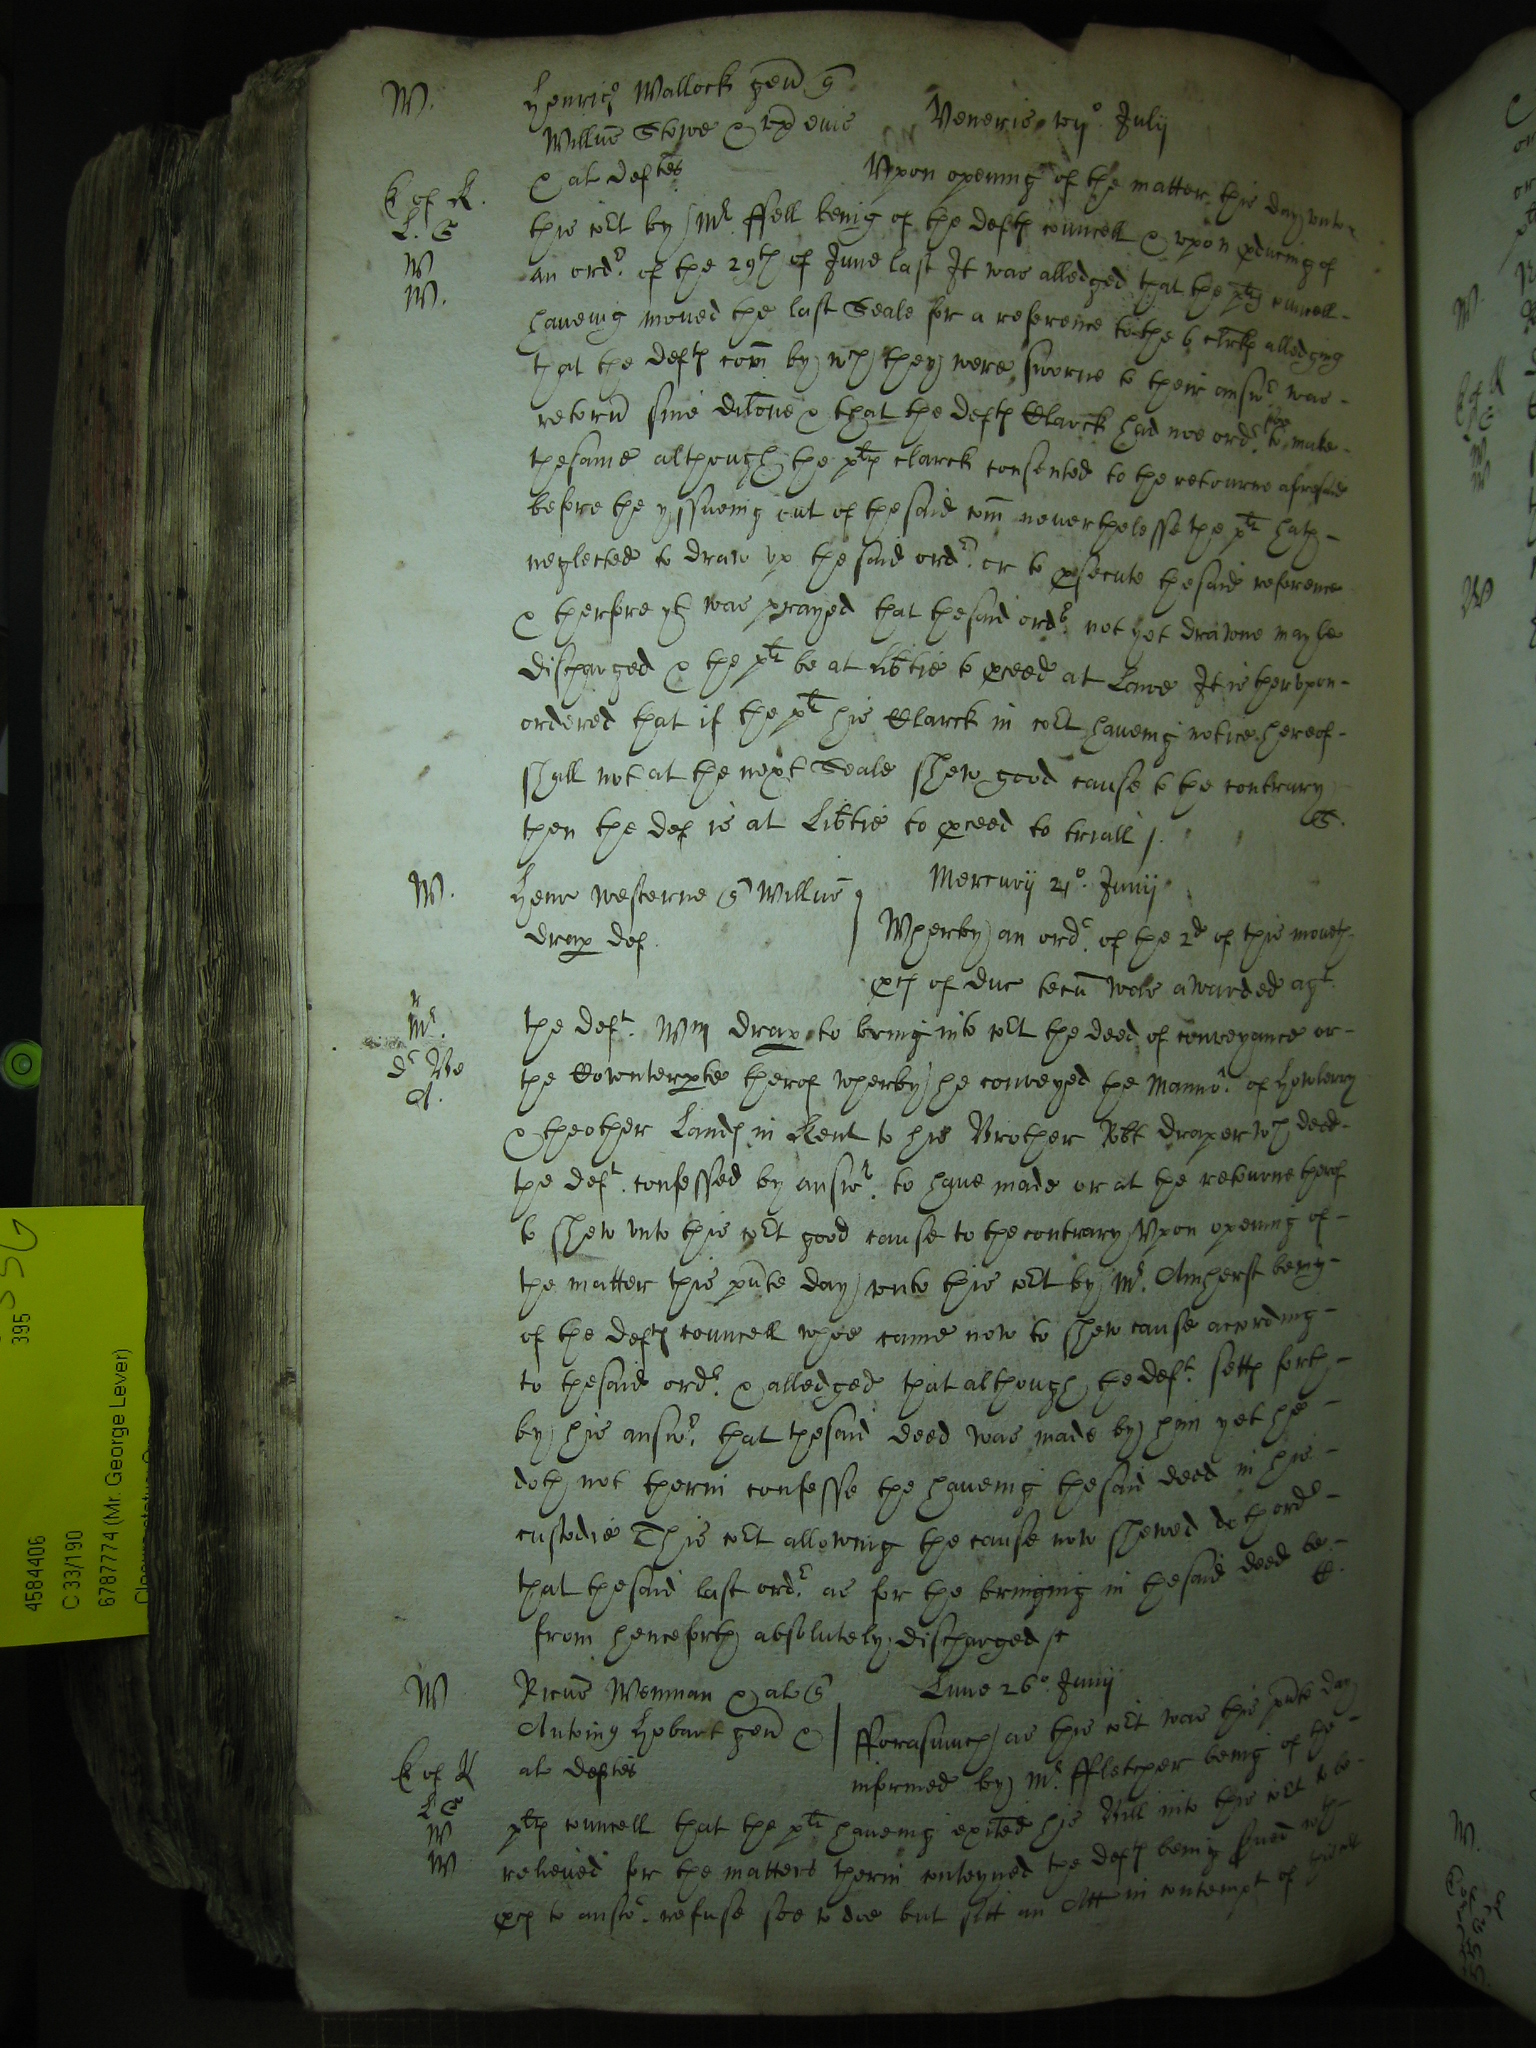 W. Henric9 Wallock gen q
Willus Stowe & ux eius Veneris vij° Julij
& al deftes Vpon opening of the matter this day vnto
K of R.
L. S
W
W.
this cort by Mr. ffell being of the deft councell & vpon pducing of
an ordr. of the 29th of June last It was alledged that the plt councell
haueing moued the last Seale for a reference to the 6 clrks alledging
that the deft com by wch they were sworne to their answr was
retorn sine & that the deft Clarck had noe ordr. to make
thesame although the plt clarck consented to the retourne aforesaid
before the yssueing out of thesaid com neuerthelesse the plt hath
neglected to draw vp thesaid ordr. or to psecute thesaid reference
& therfore yt was prayed that thesaid ordr. not yet drawne may be
discharged & the plt be at libtie to pceed at Lawe It is thervpon
ordered that if the plt his Clarck in cort haueing notice hereof
shall not at the next Seale shew good cause to the contrary
then the def is at Libtie to pceed to triall
W. Henr Westerne q Willus Mercurij 21°. Junij
drap def. Wherby an ordr. of the 2d of this moneth
pces of duc tecu was awarded agt.
Mr.
the deft. Wm drap to bring into cort the deed of conveyance or
the Cownterpte therof wherby he conveyed the Mannor. of
& theother Lands in Kent to his Brother Robt draper wch deed
the deft. confessed by answr. to haue made or at the retourne therof
to shew vnto this cort good cause to the contrary Vpon opening of
the matter this pnte day vnto this cort by Mr. Amherst being
of the defts councell whoe came now to shew cause according
to thesaid ordr. & alledged that although the deft. setth forth
by his answr. that thesaid deed was made by him yet he
doth not therin confesse the haueing thesaid deed in his
custodie This cort allowing the cause now shewed doth ordr
that thesaid last ordr. as for the bringing in thesaid deed be
from henceforth absolutely discharged
W Ricus Wenman & al q Lune 26° Junij
Antoni9 Hobart gen & fforasmuch as this cort was this pnte day
al deftes informed by Mr. ffletcher being of the
K of R
L S
W
W
plts councell that the plt haueing exited his Bill into this cort to be
releived for the matters therin conteyned the deft being serued wth
pces to answr. refuse soe to doe but sitt an Att in contempt of this cort
4584406
C 33/190
6787774 (Mr. George Lever)
395